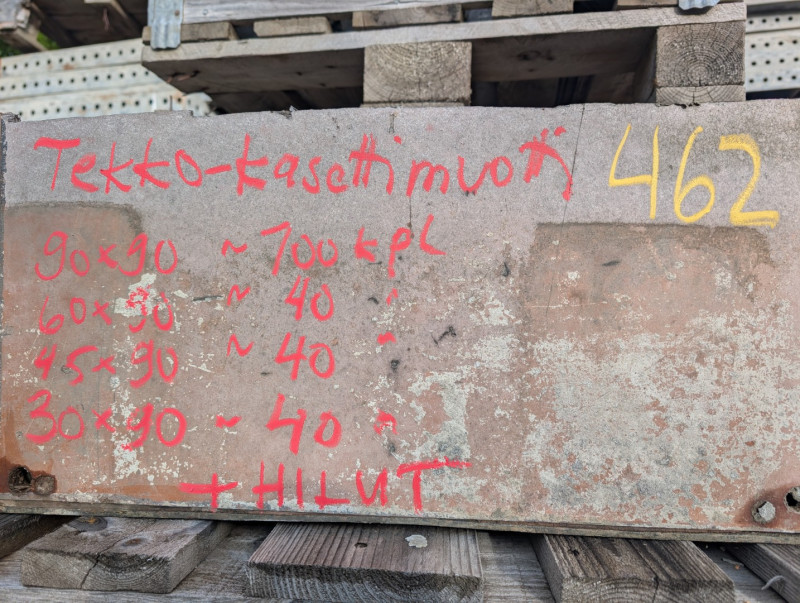 Tekko-kasettimuotti 462
90x90 ~ 700 kpl
60x90 ~ 40 "
45x90 ~ 40 "
30x90 ~ 40 "
+ HILUT